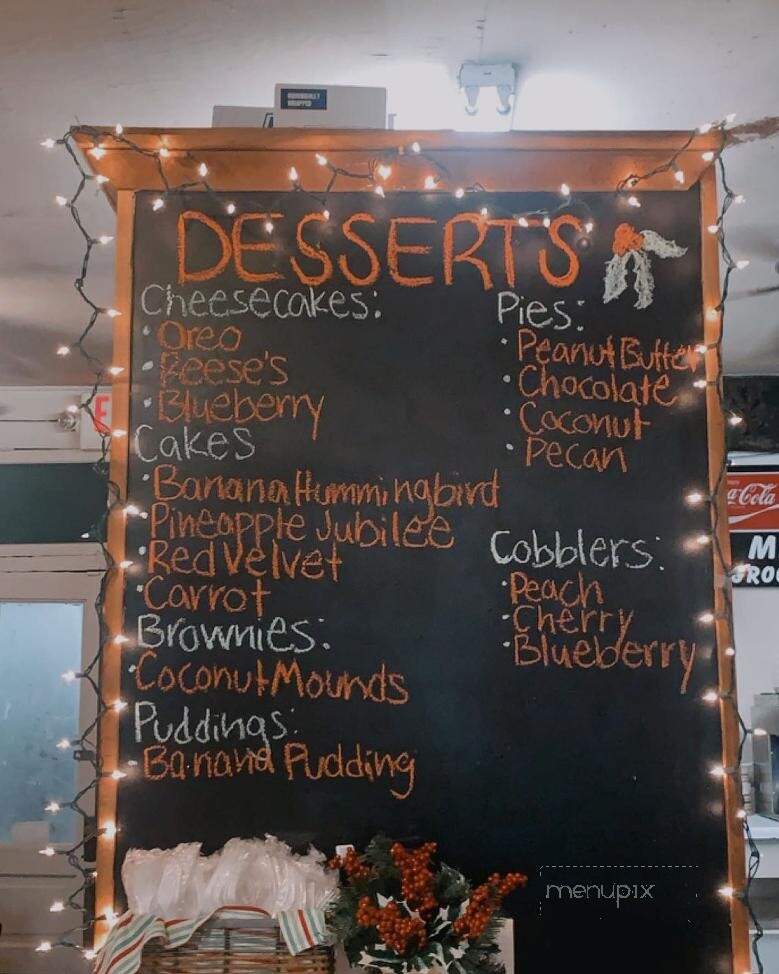 INDIVIDUALLY
WRAPPED
DESSERTS
Cheesecakes:
• Oreo
• Reese's
• Blueberry
Cakes
• Banana Hummingbird
• Pineapple Jubilee
• Red Velvet
• Carrot
Brownies:
• Coconut Mounds
Puddings:
• Banana Pudding
Pies:
• Peanut Butter
• Chocolate
• Coconut
• Pecan
Cobblers:
• Peach
• Cherry
• Blueberry
E
a-Cola
M
GROC
menupix